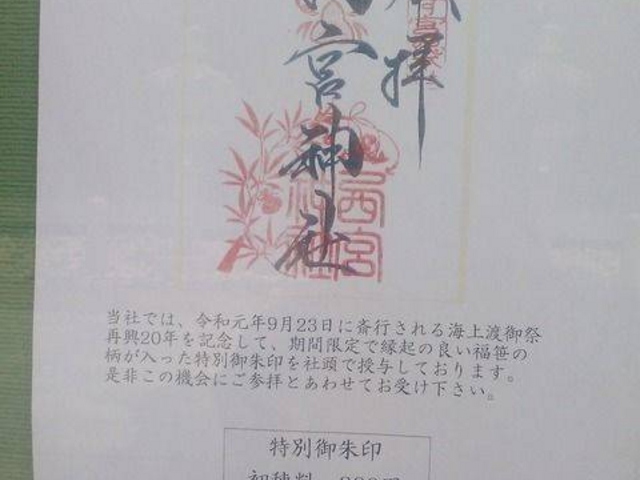 奉拝
西宮神社
西宮
当社では、令和元年9月23日に斎行される海上渡御祭
再興20年を記念して、期間限定で縁起の良い福笹の
柄が入った特別御朱印を社頭で授与しております。
是非この機会にご参拝とあわせてお受け下さい。
特別御朱印
初穂料